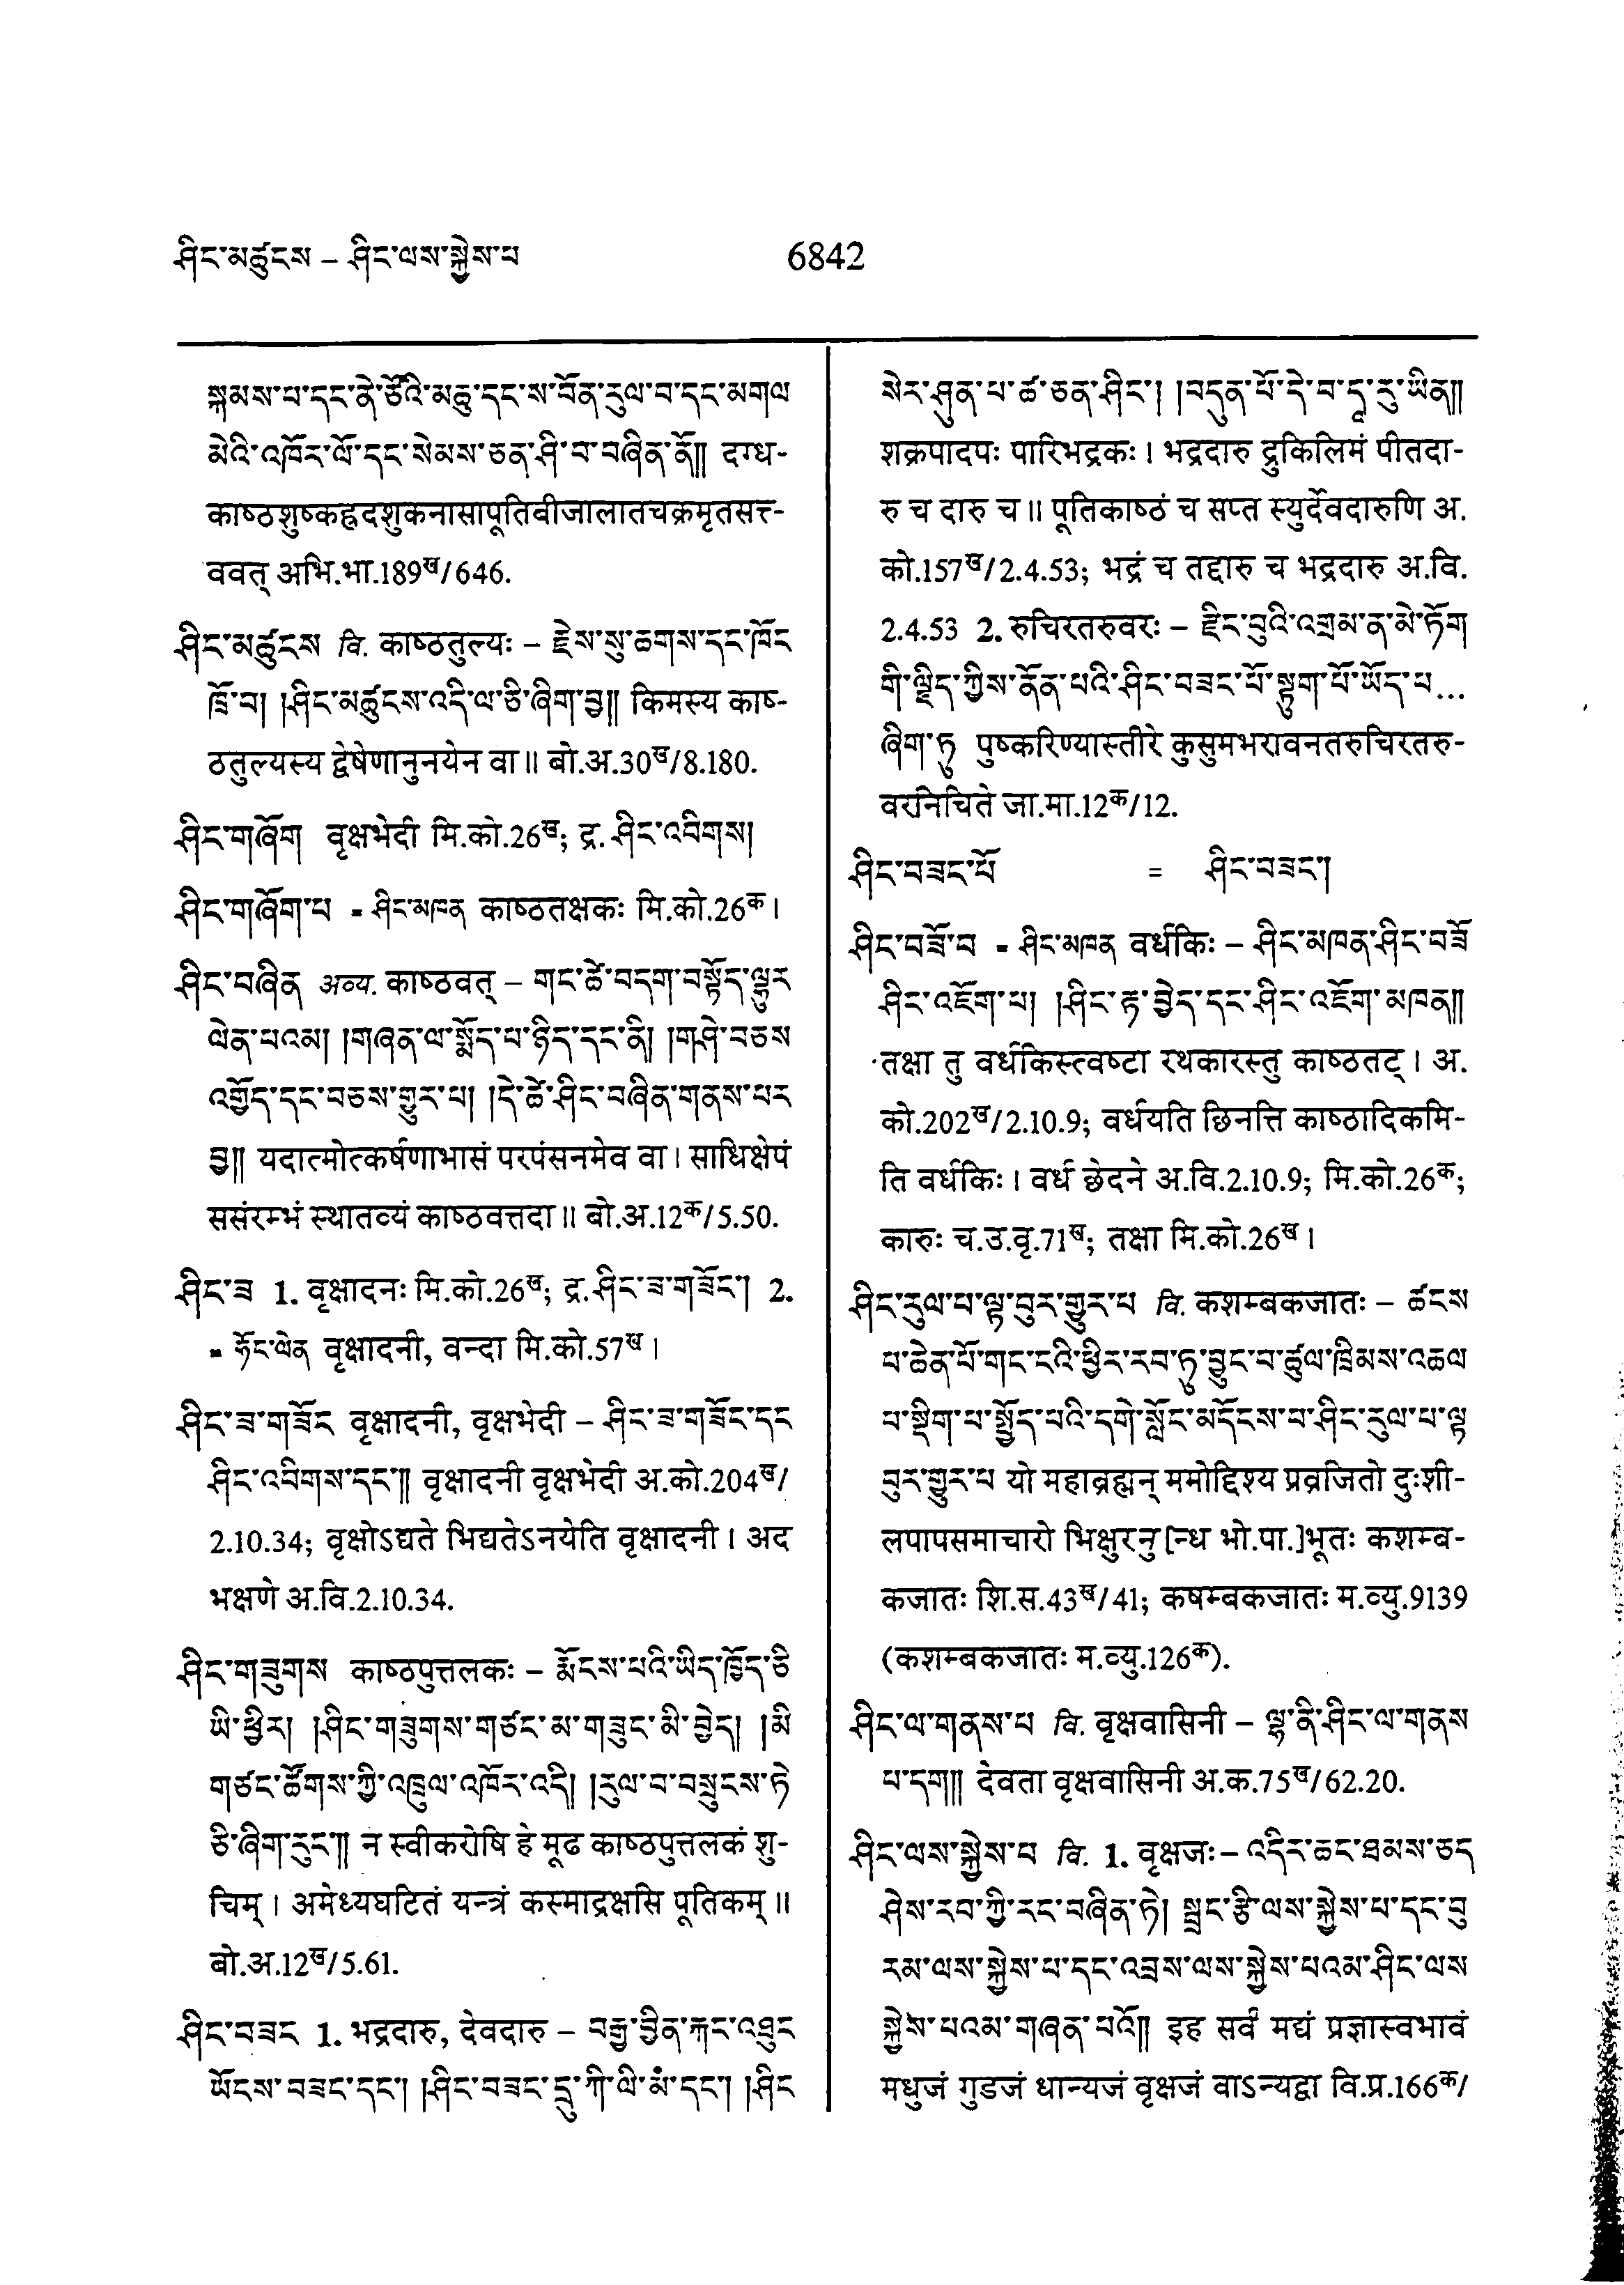 ཤིང་མཚུངས – ཤིང་ལས་སྐྱེས་པ
6842
སྐམས་པ་དང་ནེ་ཙོའི་མཆུ་དང་ས་བོན་རུལ་བ་དང་མགལ
མེའི་འཁོར་ལོ་དང་སེམས་ཅན་ཤི་བ་བཞིན་ནོ༎ दग्ध-
काष्ठशुष्कह्रदशुकनासापूतिबीजालातचक्रमृतसत्त्-
ववत् अभि.भा.189ख/646.
ཤིང་མཚུངས वि. काष्ठतुल्यः – རྗེས་སུ་ཆགས་དང་ཁོང
ཁྲོ་བ། །ཤིང་མཚུངས་འདི་ལ་ཅི་ཞིག་བྱ༎ किमस्य काष्-
ठतुल्यस्य द्वेषेणानुनयेन वा॥ बो.अ.30ख/8.180.
ཤིང་གཞོག वृक्षभेदी मि.को.26ख; द्र. ཤིང་འབིགས།
ཤིང་གཞོག་པ = ཤིང་མཁན काष्ठतक्षकः मि.को.26क।
ཤིང་བཞིན अव्य. काष्ठवत् – གང་ཚེ་བདག་བསྟོད་ལྷུར
ལེན་པའམ། །གཞན་ལ་སྨོད་པ་ཉིད་དང་ནི། །གཤེ་བཅས
འགྱོད་དང་བཅས་གྱུར་པ། །དེ་ཚེ་ཤིང་བཞིན་གནས་པར
བྱ༎ यदात्मोत्कर्षणाभासं परपंसनमेव वा। साधिक्षेपं
ससंरम्भं स्थातव्यं काष्ठवत्तदा॥ बो.अ.12क/5.50.
ཤིང་ཟ 1. वृक्षादनः मि.को.26ख; द्र.ཤིང་ཟ་གཟོང་། 2.
= ཧོང་ལེན वृक्षादनी, वन्दा मि.को.57ख।
ཤིང་ཟ་གཟོང वृक्षादनी, वृक्षभेदी – ཤིང་ཟ་གཟོང་དང
ཤིང་འབིགས་དང་༎ वृक्षादनी वृक्षभेदी अ.को.204ख/
2.10.34; वृक्षोऽद्यते भिद्यतेऽनयेति वृक्षादनी। अद
भक्षणे अ.वि.2.10.34.
ཤིང་གཟུགས काष्ठपुत्तलकः – རྨོངས་པའི་ཡིད་ཁྱོད་ཅི
ཡི་ཕྱིར། །ཤིང་གཟུགས་གཙང་མ་གཟུང་མི་བྱེད། །མི
གཙང་ཚོགས་ཀྱི་འཁྲུལ་འཁོར་འདི། །རུལ་བ་བསྲུངས་ཏེ
ཅི་ཞིག་རུང་༎ न स्वीकरोषि हे मूढ काष्ठपुत्तलकं शु-
चिम्। अमेध्यघटितं यन्त्रं कस्माद्रक्षसि पूतिकम्॥
बो.अ.12ख/5.61.
ཤིང་བཟང 1. भद्रदारु, देवदारु – བརྒྱ་བྱིན་རྐང་འཐུང
ཡོངས་བཟང་དང་། །ཤིང་བཟང་དྲུ་ཀི་ལི་མཾ་དང་། །ཤིང
སེར་ཤུན་པ་ཚ་ཅན་ཤིང་། །བདུན་པོ་དེ་བ་དཱ་རུ་ཡིན༎
शक्रपादपः पारिभद्रकः। भद्रदारु द्रुकिलिमं पीतदा-
रु च दारु च॥ पूतिकाष्ठं च सप्त स्युर्देवदारुणि अ.
को.157ख/2.4.53; भद्रं च तद्दारु च भद्रदारु अ.वि.
2.4.53 2. रुचिरतरुवरः – རྫིང་བུའི་འགྲམ་ན་མེ་ཏོག
གི་ལྗིད་ཀྱིས་ནོན་པའི་ཤིང་བཟང་པོ་སྟུག་པོ་ཡོད་པ...
ཞིག་ཏུ पुष्करिण्यास्तीरे कुसुमभरावनतरुचिरतरु-
वरनिचिते जा.मा.12क/12.
ཤིང་བཟང་པོ = ཤིང་བཟང་།
ཤིང་བཟོ་བ = ཤིང་མཁན वर्धकिः – ཤིང་མཁན་ཤིང་བཟོ
ཤིང་འཇོག་པ། །ཤིང་རྟ་བྱེད་དང་ཤིང་འཇོག་མཁན༎
तक्षा तु वर्धकिस्त्वष्टा रथकारस्तु काष्ठतट्। अ.
को.202ख/2.10.9; वर्धयति छिनत्ति काष्ठादिकमि-
ति वर्धकिः। वर्ध छेदने अ.वि.2.10.9; मि.को.26क;
कारुः च.उ.वृ.71ख; तक्षा मि.को.26ख।
ཤིང་རུལ་པ་ལྟ་བུར་གྱུར་པ वि. कशम्बकजातः – ཚངས
པ་ཆེན་པོ་གང་ངའི་ཕྱིར་རབ་ཏུ་བྱུང་བ་ཚུལ་ཁྲིམས་འཆལ
པ་སྡིག་པ་སྤྱོད་པའི་དགེ་སློང་མདོངས་བ་ཤིང་རུལ་པ་ལྟ
བུར་གྱུར་པ यो महाब्रह्मन् ममोद्दिश्य प्रव्रजितो दुःशी-
लपापसमाचारो भिक्षुरनु[न्ध भो.पा.]भूतः कशम्ब-
कजातः शि.स.43ख/41; कषम्बकजातः म.व्यु.9139
(कशम्बकजातः म.व्यु.126क).
ཤིང་ལ་གནས་པ वि. वृक्षवासिनी – ལྷ་ནི་ཤིང་ལ་གནས
པ་དག༎ देवता वृक्षवासिनी अ.क.75ख/62.20.
ཤིང་ལས་སྐྱེས་པ वि. 1. वृक्षजः – འདིར་ཆང་ཐམས་ཅད
ཤེས་རབ་ཀྱི་རང་བཞིན་ཏེ། སྦྲང་རྩི་ལས་སྐྱེས་པ་དང་བུ
རམ་ལས་སྐྱེས་པ་དང་འབྲས་ལས་སྐྱེས་པའམ་ཤིང་ལས
སྐྱེས་པའམ་གཞན་པའོ༎ इह सर्वं मद्यं प्रज्ञास्वभावं
मधुजं गुडजं धान्यजं वृक्षजं वाऽन्यद्वा वि.प्र.166क/